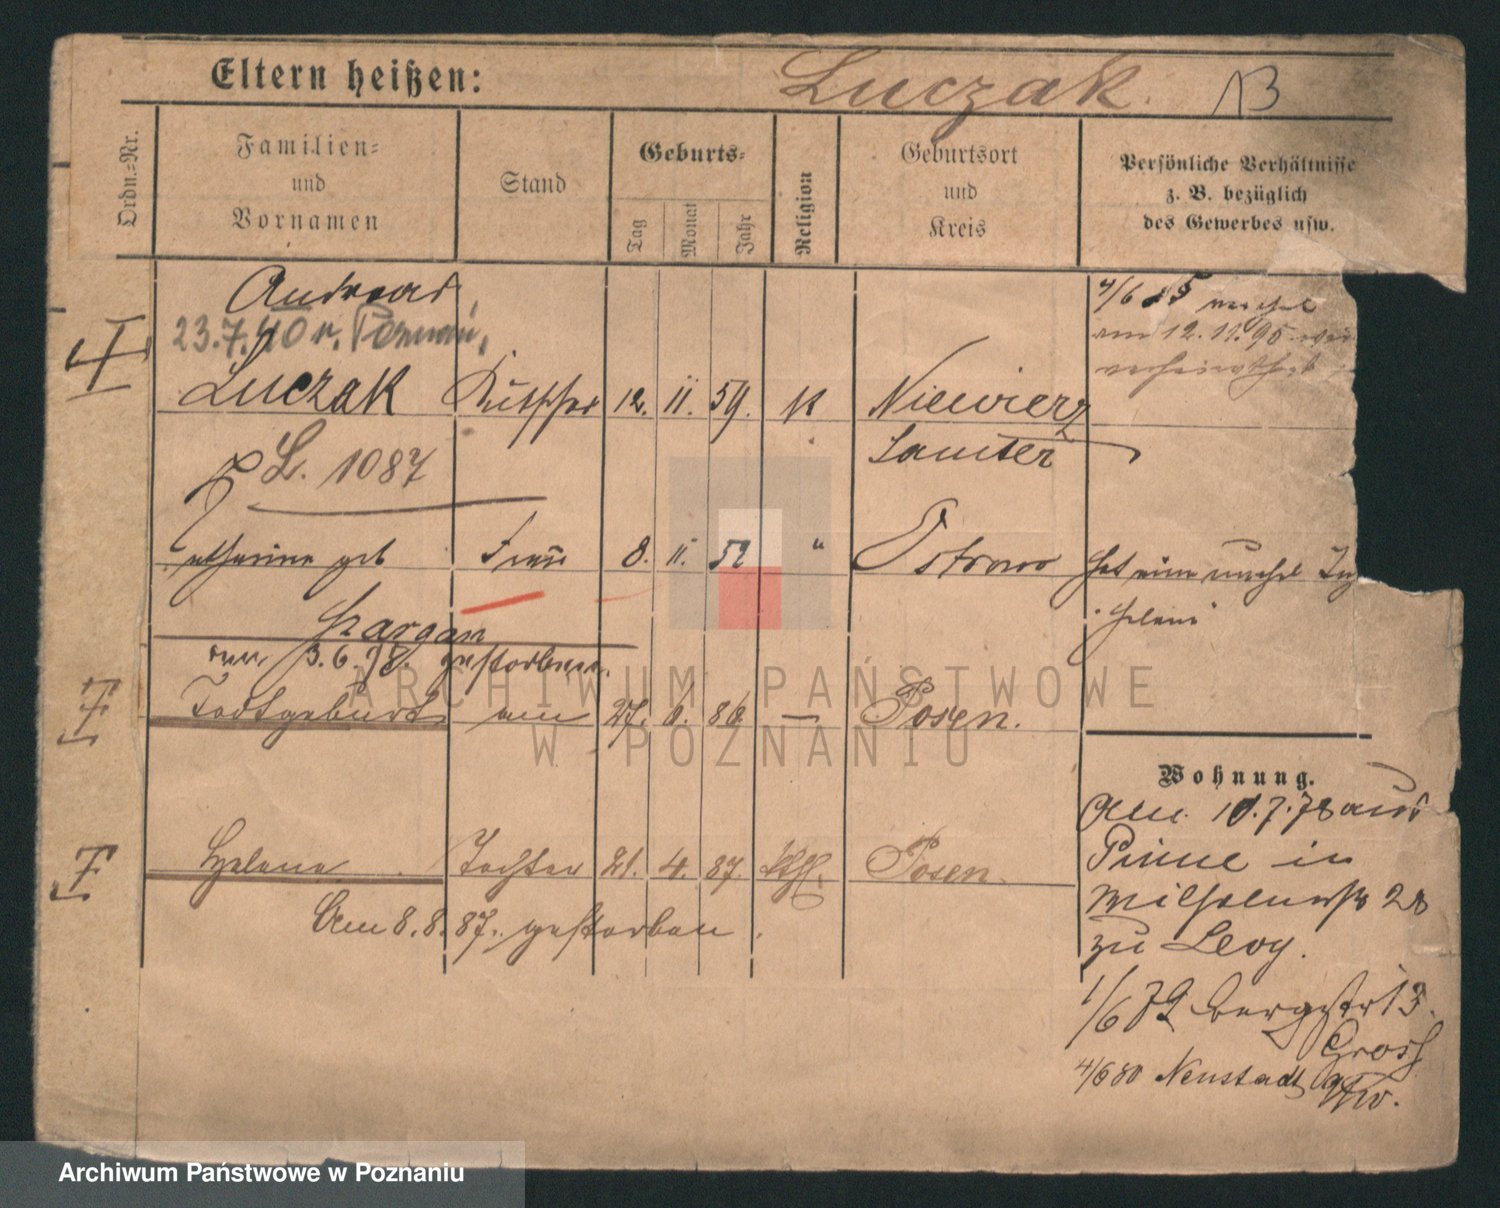 Eltern heißen:
Luczak.
13
Ordn.=Nr.
Familien=
und
Vornamen
Stand
Geburts=
Tag
Monat
Jahr
Religion
Geburtsort
und
Kreis
Persönliche Verhältnisse
z. B. bezüglich
des Gewerbes usw.
Andreas
23.7.40 v. Poznań,
Luczak Kutscher 12. 11. 59. K Niewierz
Samter
4/6 85
am 12. 11. 95
verheirathet
L. 1087
Catharina geb Frau 8. 11. 52 " Ostrowo
hat eine unehel
Helene
Szargan
am 3.6.98. gestorben.
Todtgeburt am 27. 6. 86. — Posen.
Helene Tochter 21. 4. 87. kthl. Posen.
Am 8.8.87. gestorben.
Wohnung.
Am 10.7.78 aus
Pinne in
Wilhelmstr 28
zu Levy.
1/6 79 Bergstr 13.
Gross
4/6 80 Neustadt
ARCHIWUM PAŃSTWOWE
W POZNANIU
Archiwum Państwowe w Poznaniu